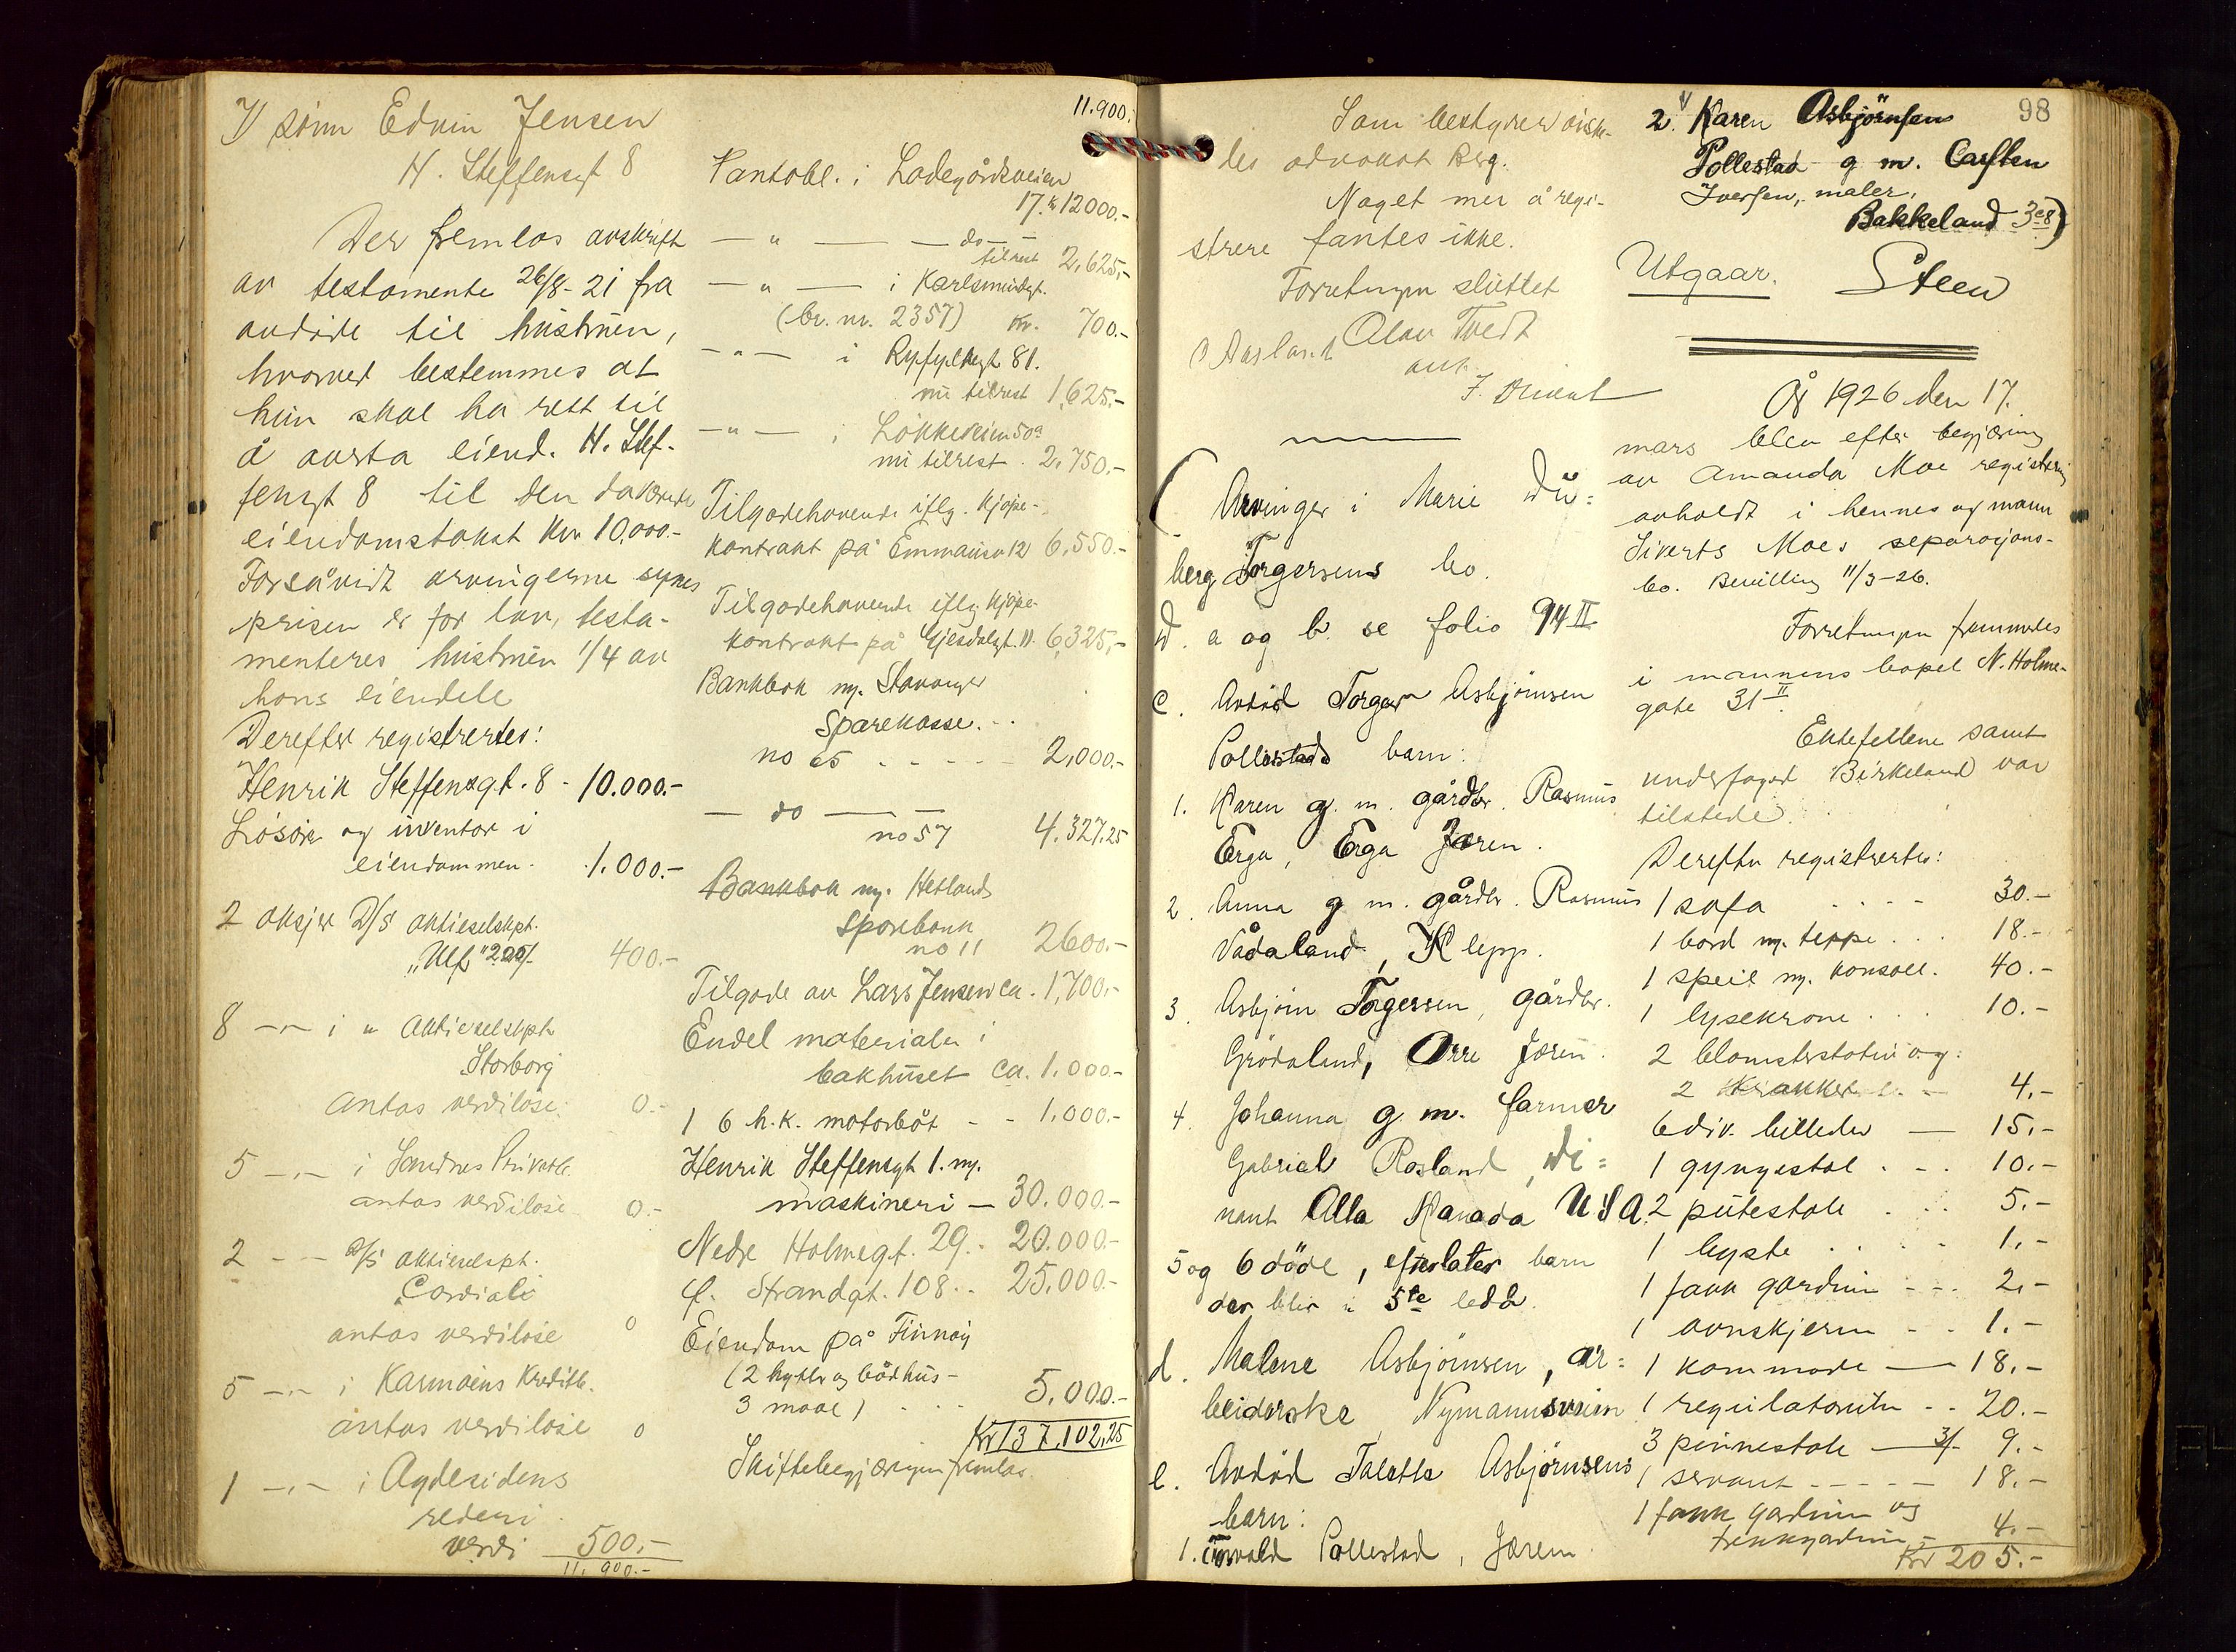 7) sönn Edvin Jensen
H. Steffensgt 8
Der fremlas avskrift
av testamente 26/8-21 fra
avdöde til hustruen,
hvorved bestemmes at
hun skal ha rett til
å overta eiend. H. Stef-
fensgt 8 til den daværende
eiendomstakst kr 10.000.-
Forsåvidt arvingerne synes
prisen er for lav, testa-
menteres hustruen 1/4 av
hans eiendele
Derefter registrertes:
Henrik Steffensgt. 8 - 10.000.-
Lösöre og inventar i
eiendommen - 1.000.-
2 aksjer D/S aktieselskpt.
"Ulf" 200/- 400.-
8 -"- i " Aktieselskpt.
Storborg
antas verdilöse. 0.-
5 -"- i Sandnes Privatb.
antas verdilöse 0.-
2 - - D/S aktieselskpt.
"Cordiali
antas verdilöse 0
5 -"- i Karmöens Kreditb.
antas verdilöse 0
1 -"- i Agdesidens
rederi
verdi 500.-
11.900.-
11.900.
Pantobl. i Ladegårdsveien
17. kr 12000.-
- " - - do -
tilrest 2,625,-
- " - i Karlsmindegt.
(br. nr. 2357) kr. 700.-
- " - i Ryfylkegt 81.
nu tilrest 1,625.-
- " - i Lökkeveien 50a
nu tilrest . 2,750.-
Tilgodehavende iflg. kjöpe-
kontrakt på Emmausv 12 6,550.-
Tilgodehavende iflg kjöpe-
kontrakt på Gjesdalsgt. 11. 6,325,-
Bankbok m/. Stavanger
Sparekasse. -
no 65 - - - - - 2,000.-
- do -
no 57 4.327.25
Bankbok m/. Hetlands
Sparebank
no 11 2600.-
Tilgode av Lars Jensen ca. 1,700.-
Endel materialer i
bakhuset ca. 1.000.-
1 6 h.k. motorbåt - - 1.000.-
Henrik Steffensgt 1. m/.
maskineri - 30.000.-
Nedre Holmegt. 29. - 20.000.-
Ö. Strandgt. 108 . . 25.000.-
Eiendom på Finnöy
(2 hytter og bådhus -
3 maal) . . . 5.000.-
Kr 137.102,25
Skiftebegjæringen fremlas.
98
Som bestyrer önske-
des advokat Berg.
Noget mer å regi-
strere fantes ikke.
Forretningen sluttet
O Aasland Olav Tvedt
aut.
(Arvinger i Marie Du=
berg Torgersens bo.
a og b. se folio 94 II
c. Avdöd Torger Asbjörnsen
Pollestads barn:
1. Karen g. m. gårdbr. Rasmus
Erga, Erga Jæren.
2. Anna g m. gårdbr. Rasmus
Vådaland, Klepp.
3. Asbjörn Torgersen, gårdbr.
Grödaland, Orre Jæren.
4. Johanna g. m. farmer
Gabriel Rosland, Di=
nant Alta Kanada U S A.
5 og 6 döde, efterlater barn
der blir i 5te ledd.
d. Malene Asbjörnsen, ar=
beiderske Nymannsveien
e. Avdöd Talette Asbjörnsens
barn:
1. Torvald Pollestad, Jæren
2. Karen Asbjörnsens
Pollestad g m. Carsten
Iversen, maler,
Bakkeland 3c8)
Utgaar. Steen
År 1926 den 17.
mars blev efter begjæring
av Amanda Moe registrering
avholdt i hennes og mann
Siverts Moes separasjons-
bo. Bevilling 11/3-26.
Forretningen fremmedes
i mannens bopel N. Holme-
gate 31 II.
Ektefellene samt
underfoged Birkeland var
tilstede.
Derefter registrertes:
1 sofa . . . . 30.-
1 bord m/. teppe . . . 18.-
1 speil m/. konsoll. 40.-
1 lysekrone . . . 10.-
2 blomsterstativ og:
2 Krakker - 4.-
6 div. billeder - 15.-
1 gyngestol . - . 10.-
2 putestole . . . 5.-
1 lyste . . . . 1.-
1 fack gardin - - - 2,-
1 ovnskjerm - - 1.-
1 kommode - 18.-
1 regulatorutn - - 20.-
3 pinnestole - 3/- 9.-
1 servant - - - - - 18.-
1 fack gardin og
trekkgardin - 4.-
Kr 205.-